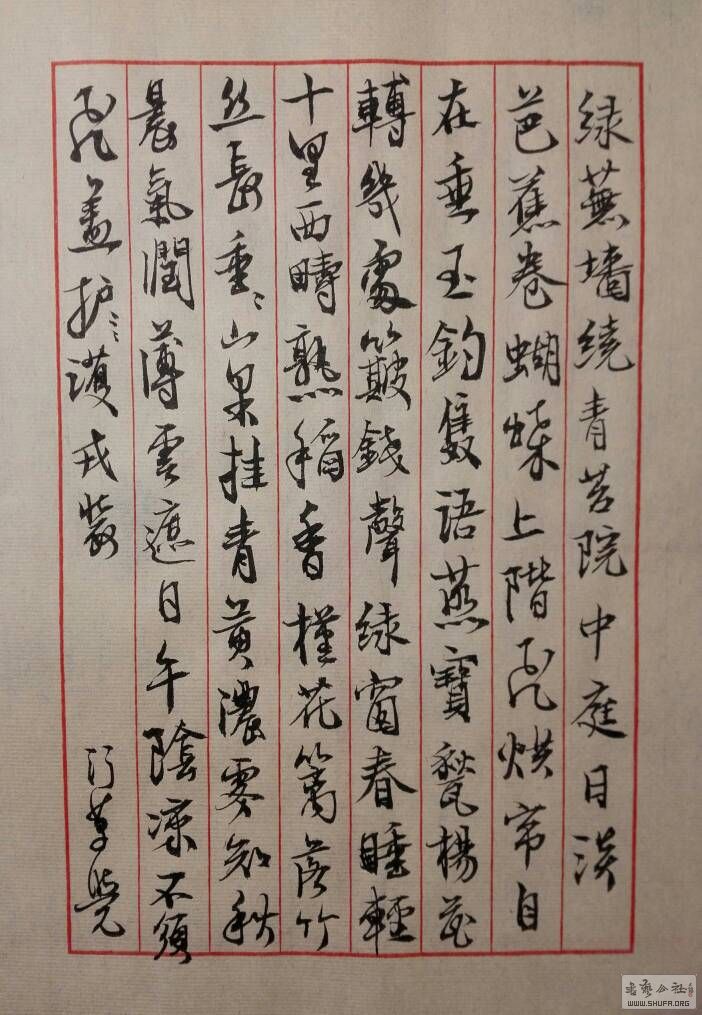 緑蕪墻繞青苔院中庭日淡
芭蕉卷蝴蝶上階飛烘帘自
在垂玉鈎隻語燕寶甃楊花
轉幾處簸錢聲緑窗春睡輕
十里西疇熟稻香槿花篱落竹
丝長垂〻山果挂青黄濃雾知秋
晨氣潤薄雲遮日午陰凉不須
飛盖护護戎裝
书艺公社
WWW.SHUFR.ORG